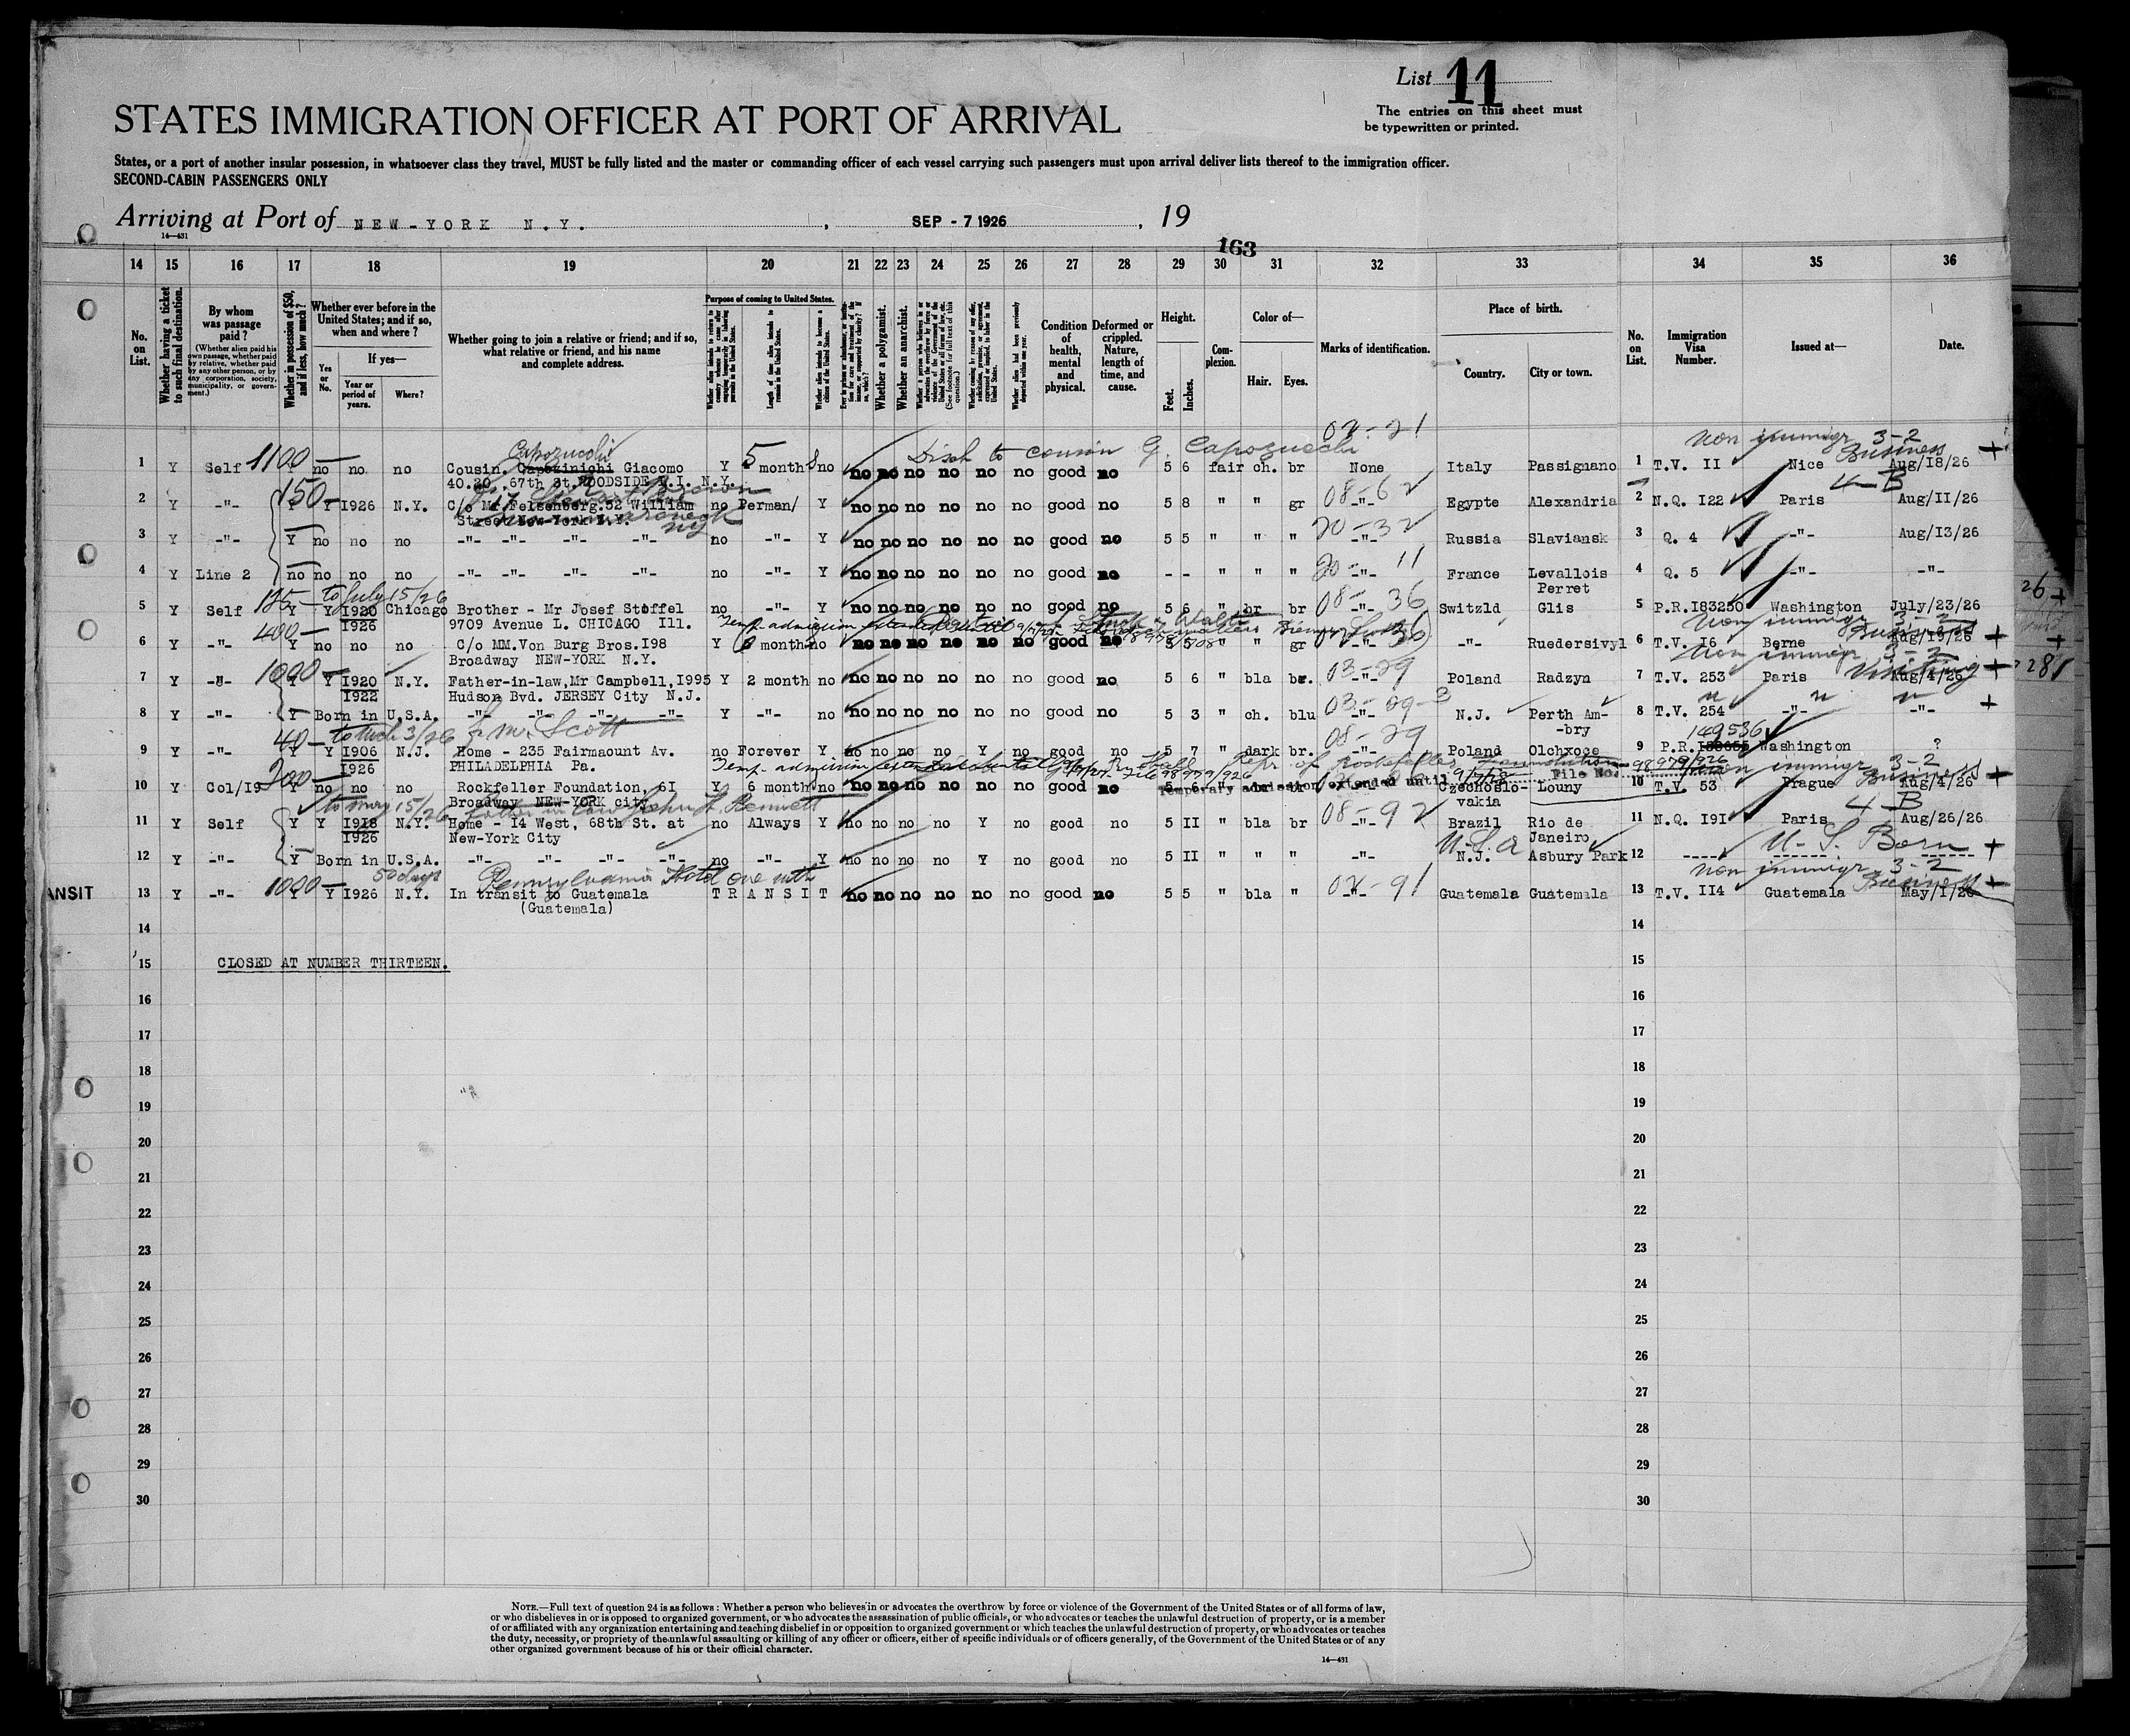 List 11
The entries on this sheet must
be typewritten or printed.
STATES IMMIGRATION OFFICER AT PORT OF ARRIVAL
States, or a port of another insular possession, in whatsoever class they travel, MUST be fully listed and the master or commanding officer of each vessel carrying such passengers must upon arrival deliver lists thereof to the immigration officer.
SECOND-CABIN PASSENGERS ONLY
Arriving at Port of NEW-YORK N.Y. , SEP - 7 1926 , 19
14—431
163
14 15 16 17 18 19 20 21 22 23 24 25 26 27 28 29 30 31 32 33 34 35 36
No. on List.
Whether having a ticket to such final destination.
By whom was passage paid?
(Whether alien paid his own passage, whether paid by relative, whether paid by any other person, or by any corporation, society, municipality, or government.)
Whether in possession of $50, and if less, how much?
Whether ever before in the United States; and if so, when and where?
Yes or No.
If yes—
Year or period of years.
Where?
Whether going to join a relative or friend; and if so, what relative or friend, and his name and complete address.
Purpose of coming to United States.
Length of time alien intends to remain in the United States.
Whether alien intends to become a citizen of the United States.
Whether a polygamist.
Whether an anarchist.
Condition of health, mental and physical.
Deformed or crippled. Nature, length of time, and cause.
Height.
Feet. Inches.
Complexion.
Color of—
Hair. Eyes.
Marks of identification.
Place of birth.
Country. City or town.
No. on List.
Immigration Visa Number.
Issued at—
Date.
02-21 non immigr 3-2
Capozucchi Disch to cousin G. Capozucchi Business +
1 Y Self 1100— no no no Cousin. Capozinichi Giacomo Y 5 months no no no no no no no good no 5 6 fair ch. br None Italy Passignano 1 T.V. II Nice Aug/18/26
40.20, 67th St. WOODSIDE N.Y.
150— 08-62 4-B
2 Y -"- Y Y I926 N.Y. C/o Mr Felsenberg.52 William no Perman/ Y no no no no no no good no 5 8 " " gr -"- Egypte Alexandria 2 N.Q. I22 Paris Aug/11/26
Street New-York N.Y.
20-32
3 Y -"- Y no no no -"- -"- -"- -"- no -"- Y no no no no no no good no 5 5 " " " -"- Russia Slaviansk 3 Q. 4 -"- Aug/13/26
20-11
4 Y Line 2 no no no no -"- -"- -"- -"- no -"- Y no no no no no no good no - - " " " -"- France Levallois 4 Q. 5 -"- -"-
Perret
125— to July 15/26 08-36
5 Y Self Y Y I920 Chicago Brother - Mr Josef Stoffel no -"- Y no no no no no no good no 5 6 " br br -"- Switzld Glis 5 P.R.I83250 Washington July/23/26
I926 9709 Avenue L. CHICAGO Ill.
400— Temp. admission extended until non immigr 3-2 Business +
6 Y -"- Y no no no C/o MM.Von Burg Bros.I98 Y 6 month no no no no no no no good no 5 5 " " gr -"- -"- Ruedersivyl 6 T.V. I6 Berne Aug/19/26
Broadway NEW-YORK N.Y.
1000— 03-29 non immigr 3-2 Visiting +
7 Y -"- Y Y I920 N.Y. Father-in-law,Mr Campbell,I995 Y 2 month no no no no no no no good no 5 6 " bla br. -"- Poland Radzyn 7 T.V. 253 Paris Aug/4/26
I922 Hudson Bvd. JERSEY City N.J.
03-09-3
8 Y -"- Y Born in U.S.A. -"- -"- -"- -"- Y -"- no no no no no no no good no 5 3 " ch. blu -"- N.J. Perth Am- 8 T.V. 254 -"- -"- +
-bry
40— to Mch 3/26 Fr. M. Scott 08-29 149536
9 Y -"- Y Y I906 N.J. Home - 235 Fairmaount Av. no Forever Y no no no no Y no good no 5 7 " dark br. -"- Poland Olchxoce 9 P.R. Washington ?
I926 PHILADELPHIA Pa.
200— Temp. admission extended until File 98979/926 Repr of Rockefeller Foundation non immigr 3-2 Business +
Temporary admission extended until 9/7/28 File No. 98979/926
10 Y Col/I9 Y no no no Rockfeller Foundation, 6I Y 6 month no no no no no no no good no 5 6 Czechoslo- Louny 10 T.V. 53 Prague Aug/4/26
Broadway NEW-YORK city vakia
to May 15/26 Father in law John H. Bennett 08-92 4-B
11 Y Self Y Y I918 N.Y. Home - I4 West, 68th St. at no Always Y no no no no Y no good no 5 II " bla br -"- Brazil Rio de 11 N.Q. I9I Paris Aug/26/26
I926 New-York City Janeiro
U.S.A U.S. Born +
12 Y -"- Y Born in U.S.A. -"- -"- -"- -"- no -"- Y no no no no Y no good no 5 II " " " -"- N.J. Asbury Park 12
1000— 50 days Pennsylvania Hotel one mth 02-91 non immigr 3-2 Business +
ANSIT 13 Y -"- Y Y I926 N.Y. In transit to Guatemala TRANSIT no no no no no no good no 5 5 " bla " -"- Guatemala Guatemala 13 T.V. II4 Guatemala May/1/26
(Guatemala)
14 14
15 CLOSED AT NUMBER THIRTEEN. 15
16 16
17 17
18 18
19 19
20 20
21 21
22 22
23 23
24 24
25 25
26 26
27 27
28 28
29 29
30 30
NOTE.—Full text of question 24 is as follows: Whether a person who believes in or advocates the overthrow by force or violence of the Government of the United States or of all forms of law,
or who disbelieves in or is opposed to organized government, or who advocates the assassination of public officials, or who advocates or teaches the unlawful destruction of property, or is a member
of or affiliated with any organization entertaining and teaching disbelief in or opposition to organized government or which teaches the unlawful destruction of property, or who advocates or teaches
the duty, necessity, or propriety of the unlawful assaulting or killing of any officer or officers, either of specific individuals or of officers generally, of the Government of the United States or of any
other organized government because of his or their official character.
14—431